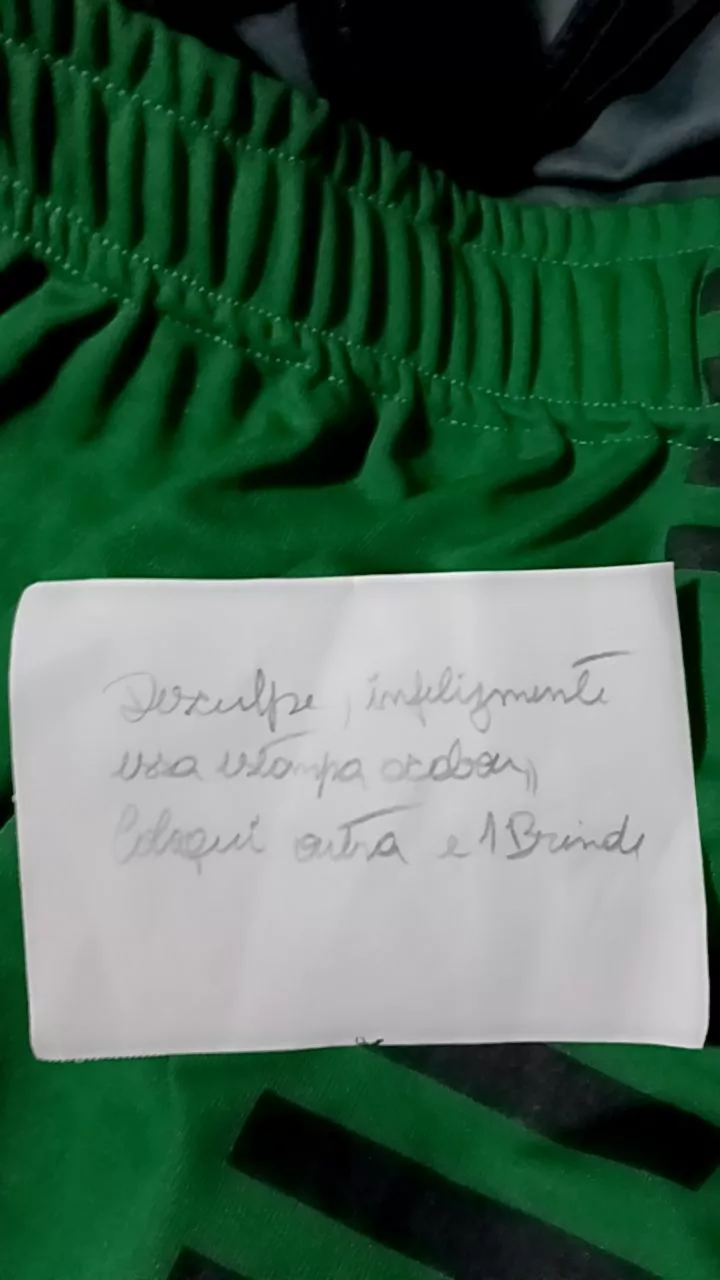 Desculpe, infelizmente
essa estampa acabou,,
Coloquei outra e 1 Brinde